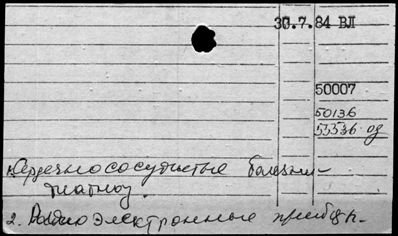 30.7.84 ВЛ
50007
50136
53536 од
Сердечнососудистые болезни-
диагноз.
2. Радиоэлектронные преобр.-